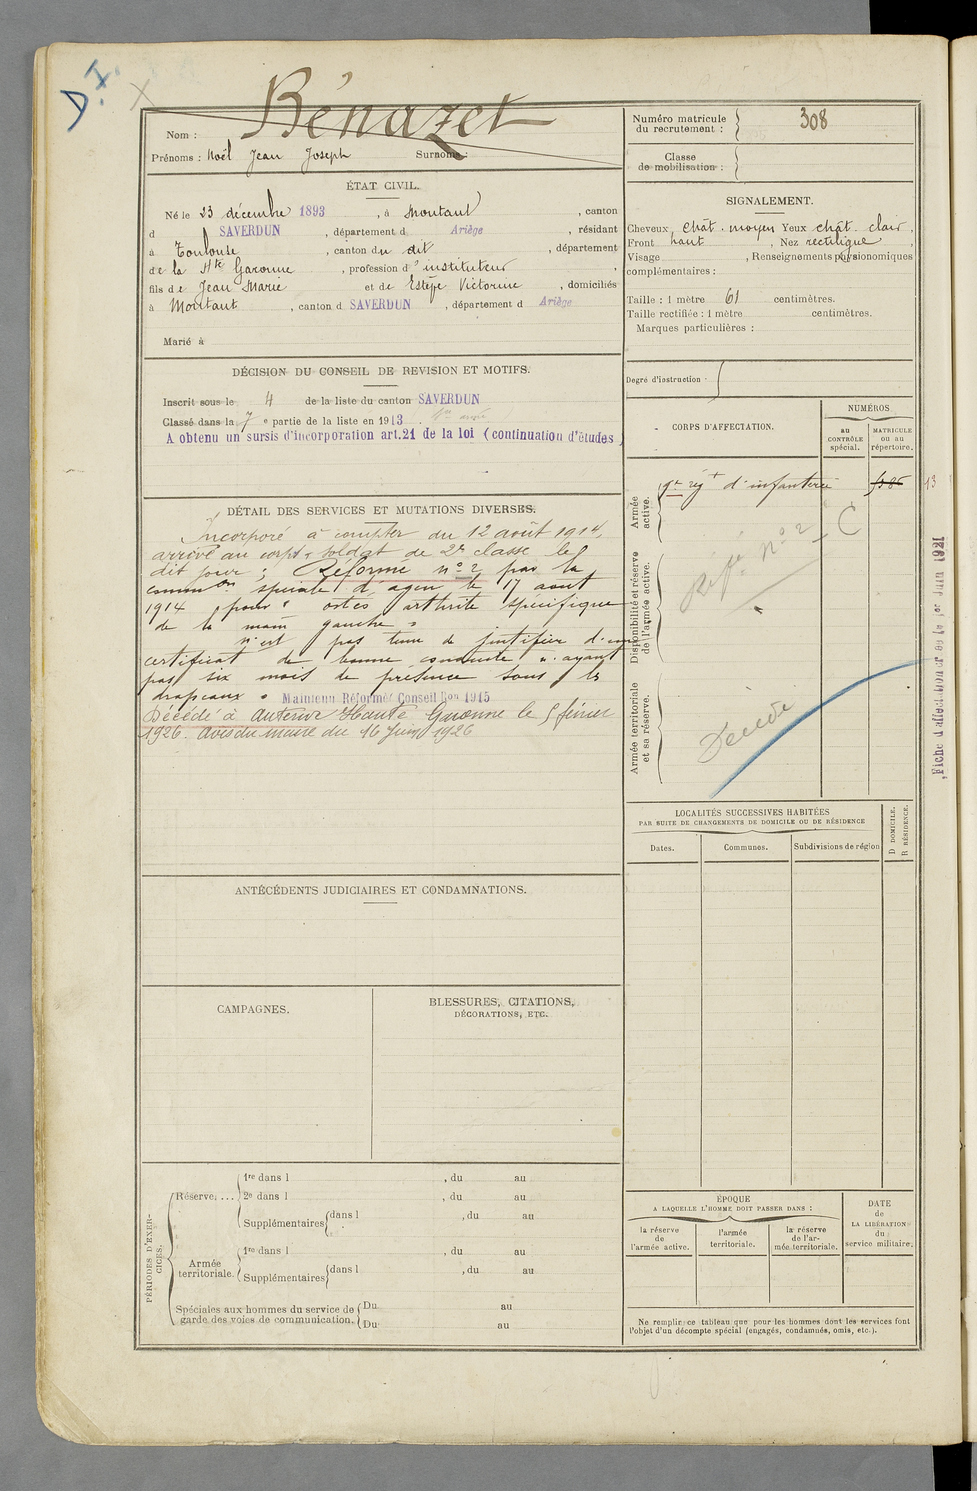 D.I. X
Bénazet
Nom :
Prénoms : Noël Jean Joseph Surnom :
Numéro matricule du recrutement : 308
Classe de mobilisation :
ÉTAT CIVIL.
Né le 23 décembre 1893, à Montaut, canton
d SAVERDUN, département d Ariège, résidant
à Toulouse, canton du dit, département
de la Hte Garonne, profession d'instituteur
fils de Jean Marie et de Estèpe Victorine, domiciliés
à Montaut, canton d SAVERDUN, département d Ariège
Marié à
SIGNALEMENT.
Cheveux chât. moyen Yeux chât. clair,
Front haut, Nez rectiligne,
Visage, Renseignements physionomiques
complémentaires :
Taille : 1 mètre 61 centimètres.
Taille rectifiée : 1 mètre centimètres.
Marques particulières :
Degré d'instruction
DÉCISION DU CONSEIL DE REVISION ET MOTIFS.
Inscrit sous le 4 de la liste du canton SAVERDUN
Classé dans la 7e partie de la liste en 1913.
A obtenu un sursis d'incorporation art.21 de la loi (continuation d'études)
DÉTAIL DES SERVICES ET MUTATIONS DIVERSES.
Incorporé à compter du 12 août 1914,
arrivé au corps & soldat de 2e classe le
dit jour ; Réformé no 2 par la
common spéciale d'agen le 17 aout
1914 pour " ostéo arthrite spécifique
de la main gauche "
N'est pas tenu de justifier d'un
certificat de bonne conduite, n'ayant
pas six mois de présence sous les
drapeaux. Maintenu Réformé Conseil Ron 1915
Décédé à Auterive Haute Garonne le 5 février
1926. Avis du maire du 16 Juin 1926
CORPS D'AFFECTATION.
NUMÉROS
au CONTRÔLE spécial.
MATRICULE ou au répertoire.
Armée active.
9e régt d'infanterie
13
Disponibilité et réserve de l'armée active.
Réfé no 2 C
Armée territoriale et sa réserve.
Décédé
Fiche d'affectation créée le 1er Juin 1921
LOCALITÉS SUCCESSIVES HABITÉES
PAR SUITE DE CHANGEMENTS DE DOMICILE OU DE RÉSIDENCE
Dates.
Communes.
Subdivisions de région
D DOMICILE.
R RÉSIDENCE.
ANTÉCÉDENTS JUDICIAIRES ET CONDAMNATIONS.
CAMPAGNES.
BLESSURES, CITATIONS,
DÉCORATIONS, ETC.
PÉRIODES D'EXERCICES.
Réserve. ...
1re dans l , du au
2e dans l , du au
Supplémentaires dans l , du au
Armée territoriale.
1re dans l , du au
Supplémentaires dans l , du au
Spéciales aux hommes du service de
garde des voies de communication.
Du au
Du au
ÉPOQUE
A LAQUELLE L'HOMME DOIT PASSER DANS :
la réserve de l'armée active.
l'armée territoriale.
la réserve de l'armée territoriale.
DATE de LA LIBÉRATION du service militaire.
Ne remplir ce tableau que pour les hommes dont les services font
l'objet d'un décompte spécial (engagés, condamnés, omis, etc.).